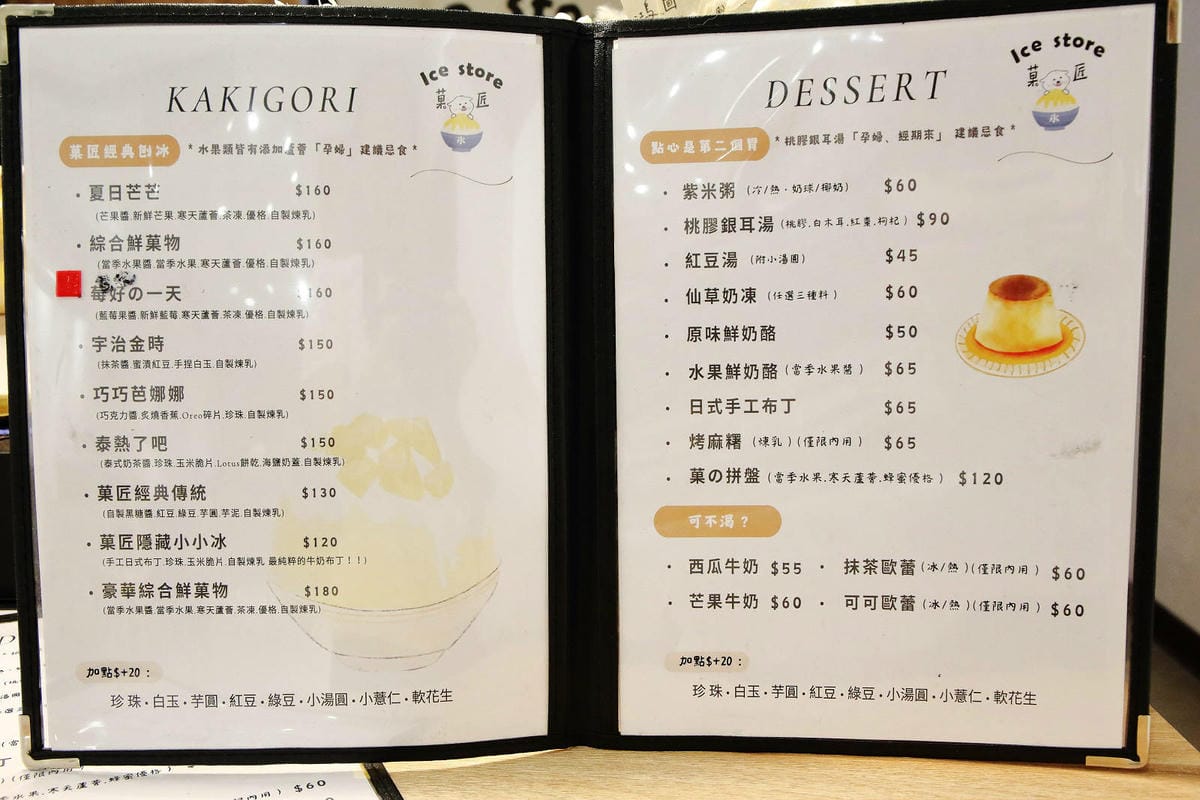 KAKIGORI
Ice store
菓 匠
氷
菓匠經典刨冰 *水果類皆有添加蘆薈「孕婦」建議忌食*
・夏日芒芒 $160
(芒果醬.新鮮芒果.寒天蘆薈.茶凍.優格.自製煉乳)
・綜合鮮菓物 $160
(當季水果醬.當季水果.寒天蘆薈.優格.自製煉乳)
莓好の一天 $160
(藍莓果醬.新鮮藍莓.寒天蘆薈.茶凍.優格.自製煉乳)
・宇治金時 $150
(抹茶醬.蜜漬紅豆.手捏白玉.自製煉乳)
・巧巧芭娜娜 $150
(巧克力醬.炙燒香蕉.Oreo碎片.珍珠.自製煉乳)
・泰熱了吧 $150
(泰式奶茶醬.珍珠.玉米脆片.Lotus餅乾.海鹽奶蓋.自製煉乳)
・菓匠經典傳統 $130
(自製黑糖醬.紅豆.綠豆.芋圓.芋泥.自製煉乳)
・菓匠隱藏小小冰 $120
(手工日式布丁.珍珠.玉米脆片.自製煉乳 最純粹的牛奶布丁！！)
・豪華綜合鮮菓物 $180
(當季水果醬.當季水果.寒天蘆薈.茶凍.優格.自製煉乳)
加點$+20：
珍珠・白玉・芋圓・紅豆・綠豆・小湯圓・小薏仁・軟花生
DESSERT
Ice store
菓 匠
氷
點心是第二個胃 *桃膠銀耳湯「孕婦、經期來」 建議忌食*
・紫米粥 (冷/熱・奶球/椰奶) $60
・桃膠銀耳湯 (桃膠.白木耳.紅棗.枸杞) $90
・紅豆湯 (附小湯圓) $45
・仙草奶凍 (任選三種料) $60
・原味鮮奶酪 $50
・水果鮮奶酪 (當季水果醬) $65
・日式手工布丁 $65
・烤麻糬 (煉乳)(僅限內用) $65
・菓の拼盤 (當季水果.寒天蘆薈.蜂蜜優格) $120
可不渴？
・西瓜牛奶 $55 ・抹茶歐蕾 (冰/熱)(僅限內用) $60
・芒果牛奶 $60 ・可可歐蕾 (冰/熱)(僅限內用) $60
加點$+20：
珍珠・白玉・芋圓・紅豆・綠豆・小湯圓・小薏仁・軟花生
(僅限內用)
水果.寒天蘆薈.蜂蜜優格)
內用) $60